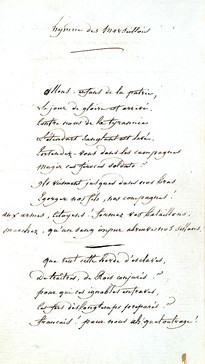 hymne des Marseillois
Allons enfans de la patrie,
Le jour de gloire est arrivé.
Contre nous de la tyrannie
L'étendart sanglant est levé.
Entendez-vous dans les campagnes
mugir ces féroces soldats ?
ils viennent jusques dans nos bras
Egorger nos fils, nos compagnes !
aux armes, citoyens ! formez vos bataillons.
marchez, qu'un sang impur abreuve nos sillons.
Que veut cette horde d'esclaves,
De traitres, de Rois conjurés ?
pour qui ces ignobles entraves,
Ces fers dès longtemps préparés ?
francais ! pour nous ah, quel outrage !